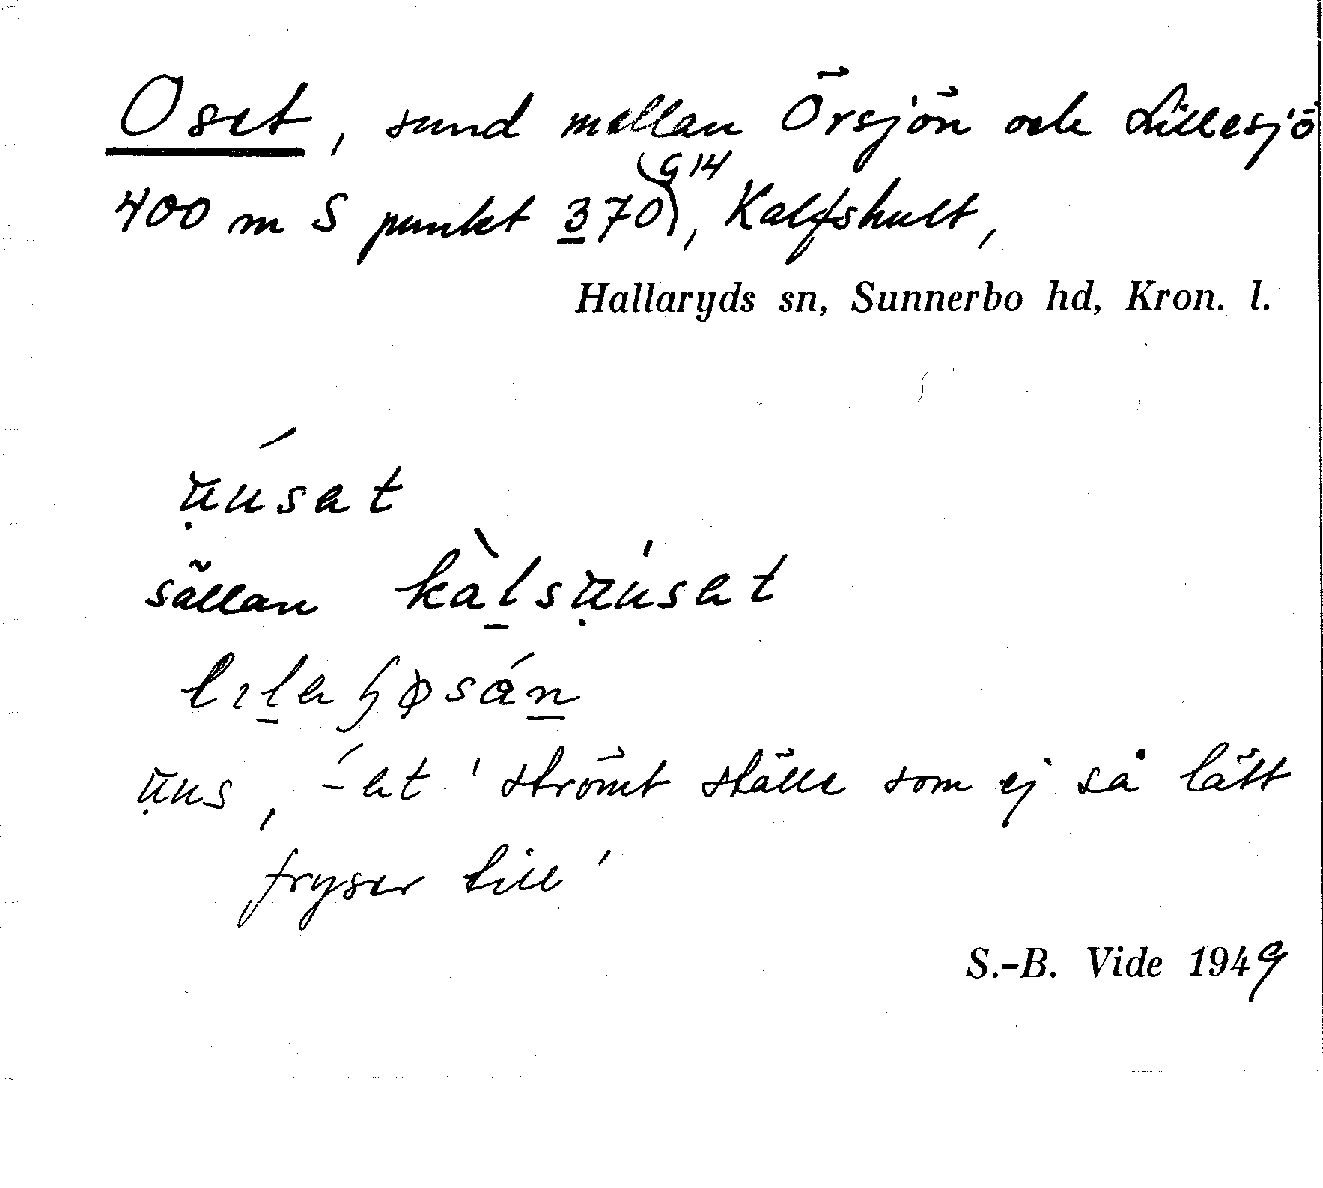 Oset, sund mellan Örsjön och Lillesjö
400 m S punkt 370 (G 14), Kalfshult,
Hallaryds sn, Sunnerbo hd, Kron. l.
ụ̈úsat
sällan kàl̠sụ̈úsat
lɪl̠a ɧøsán̠
ụ̈us, -́at 'strömt ställe som ej så lätt
fryser till'
S.-B. Vide 1949